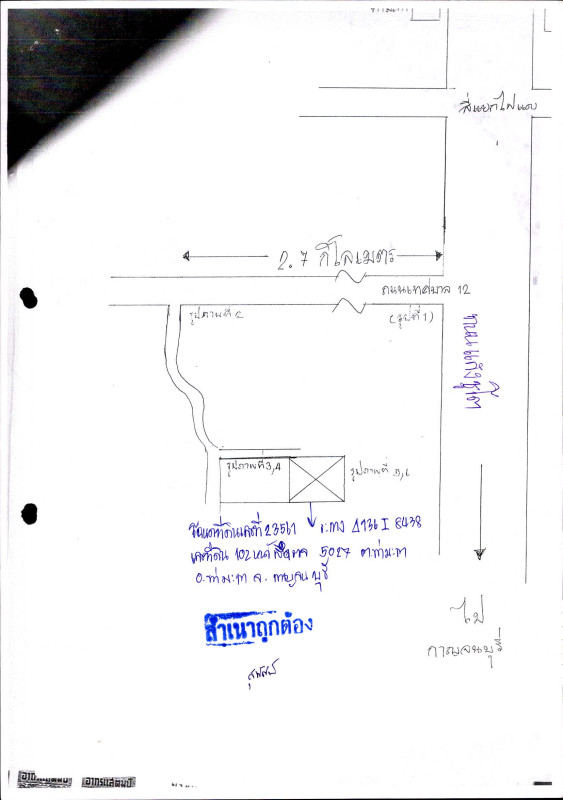 สี่แยกไฟแดง
2.7 กิโลเมตร
ถนนเทศบาล 12
รูปภาพที่ 2
(รูปที่ 1)
รูปภาพที่ 3,4
รูปภาพที่ 5,6
โฉนดที่ดินเลขที่ 23561 ระวาง 4936 I 8438
เลขที่ดิน 102 หน้าสำรวจ 5027 ต.ท่ามะกา
อ.ท่ามะกา จ.กาญจนบุรี
สำเนาถูกต้อง
ไป
กาญจนบุรี
อากรแสตมป์